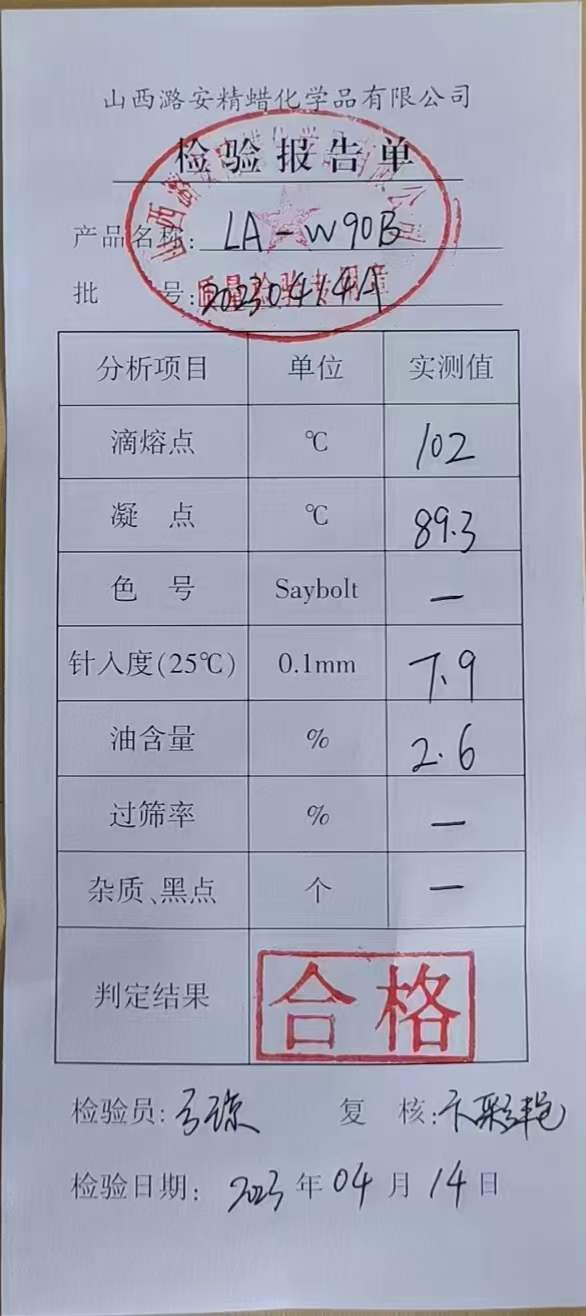 山西潞安精蜡化学品有限公司
检验报告单
产品名称: LA-W90B
批 号: 20230414A
分析项目 单位 实测值
滴熔点 ℃ 102
凝 点 ℃ 89.3
色 号 Saybolt —
针入度(25℃) 0.1mm 7.9
油含量 % 2.6
过筛率 % —
杂质、黑点 个 —
判定结果 合格
检验员:
复 核:
检验日期: 2023年04月14日